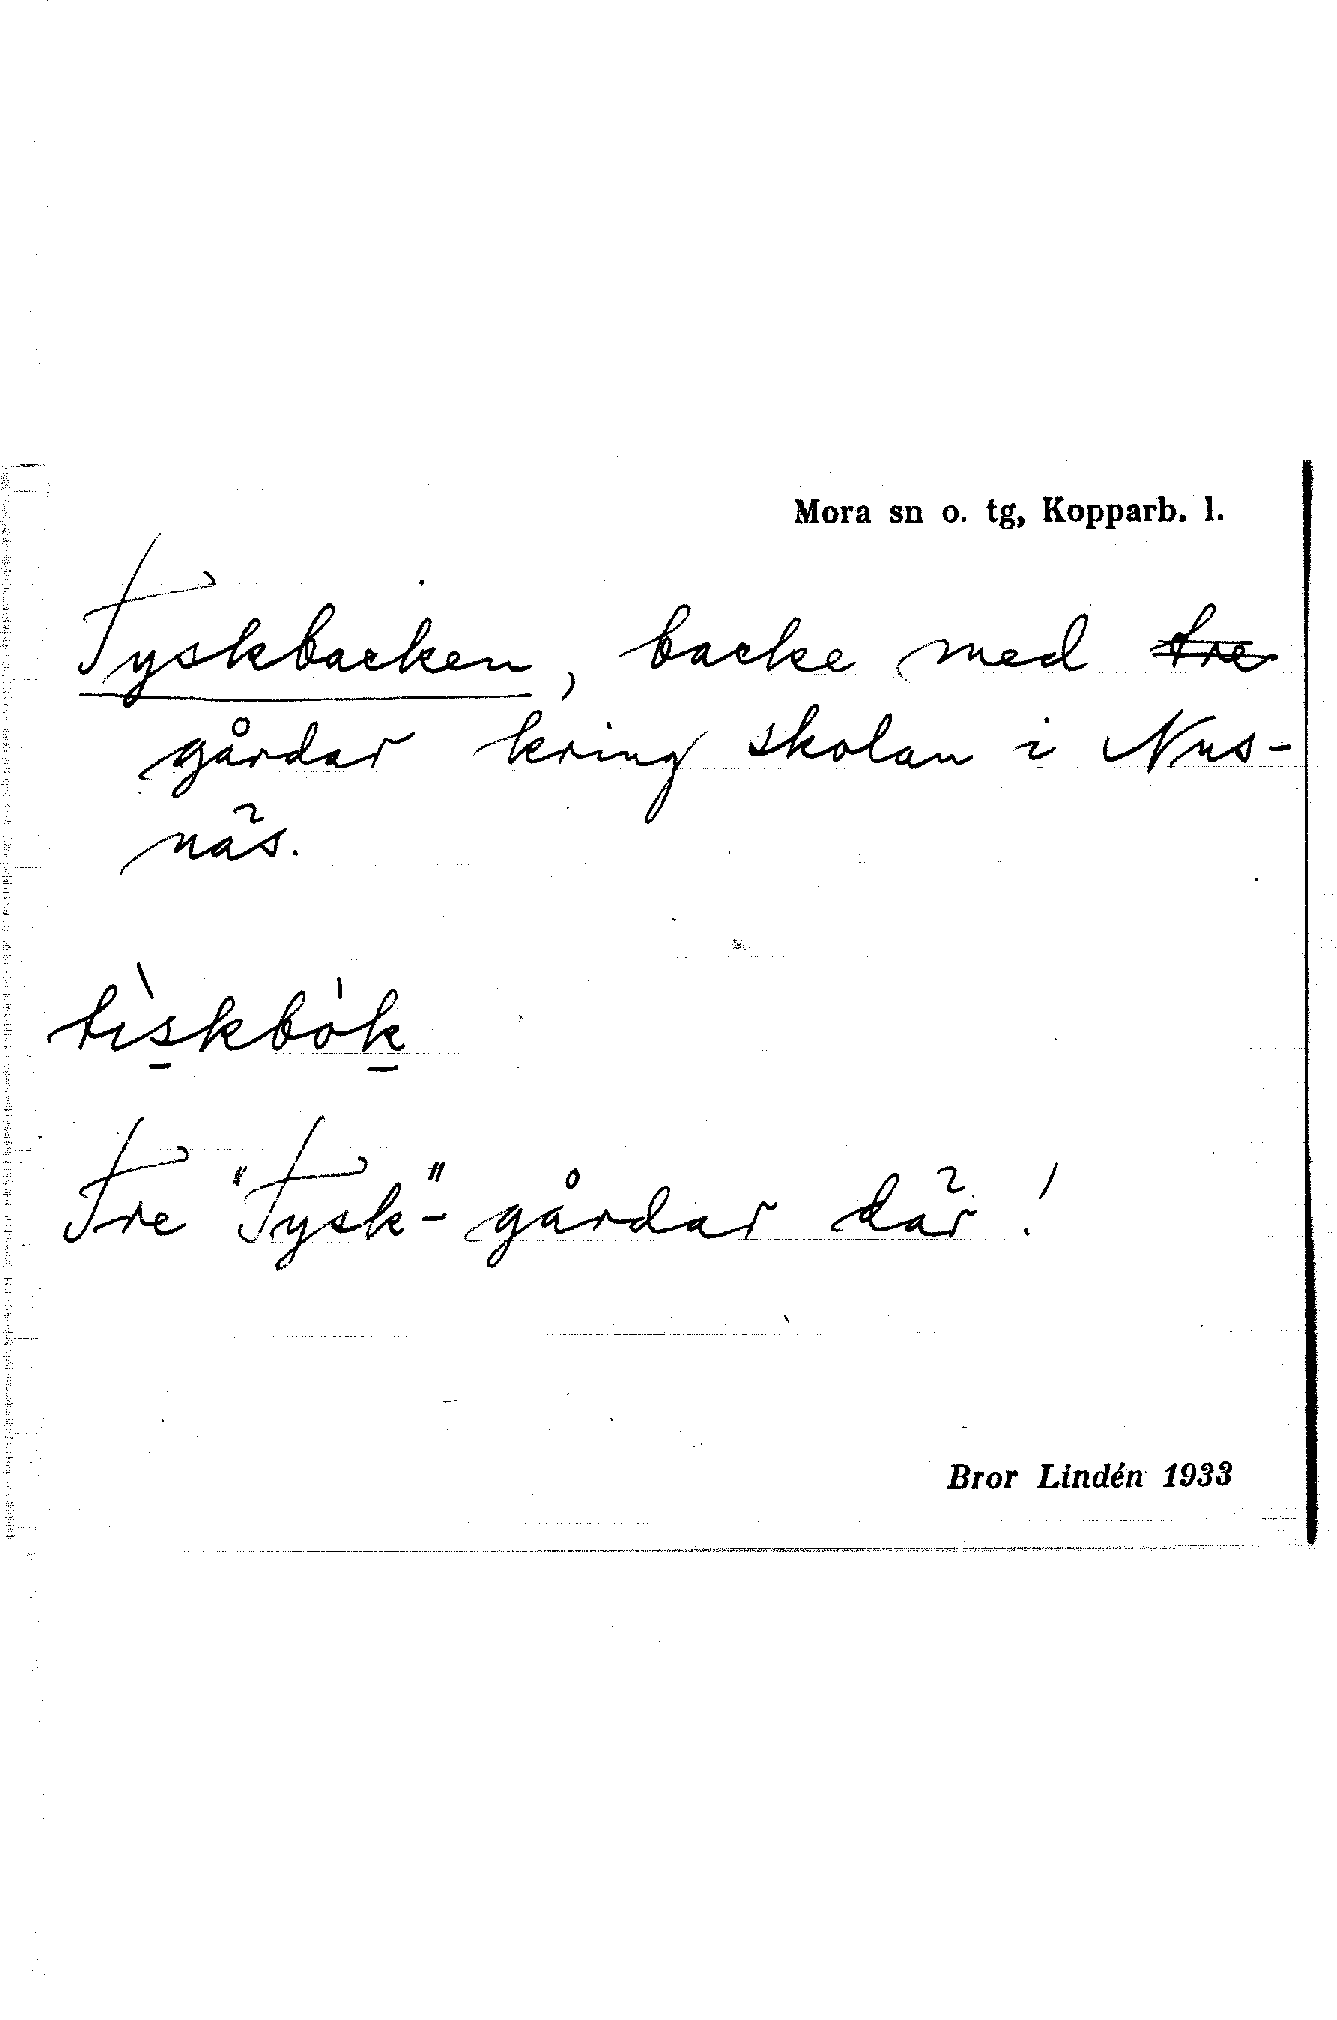 Mora sn o. tg, Kopparb. l.
Tyskbacken, backe med ~~tre~~
gårdar kring skolan i Nus-
näs.
tìs̲kbòk̲
Tre "Tysk"- gårdar där!
Bror Lindén 1933